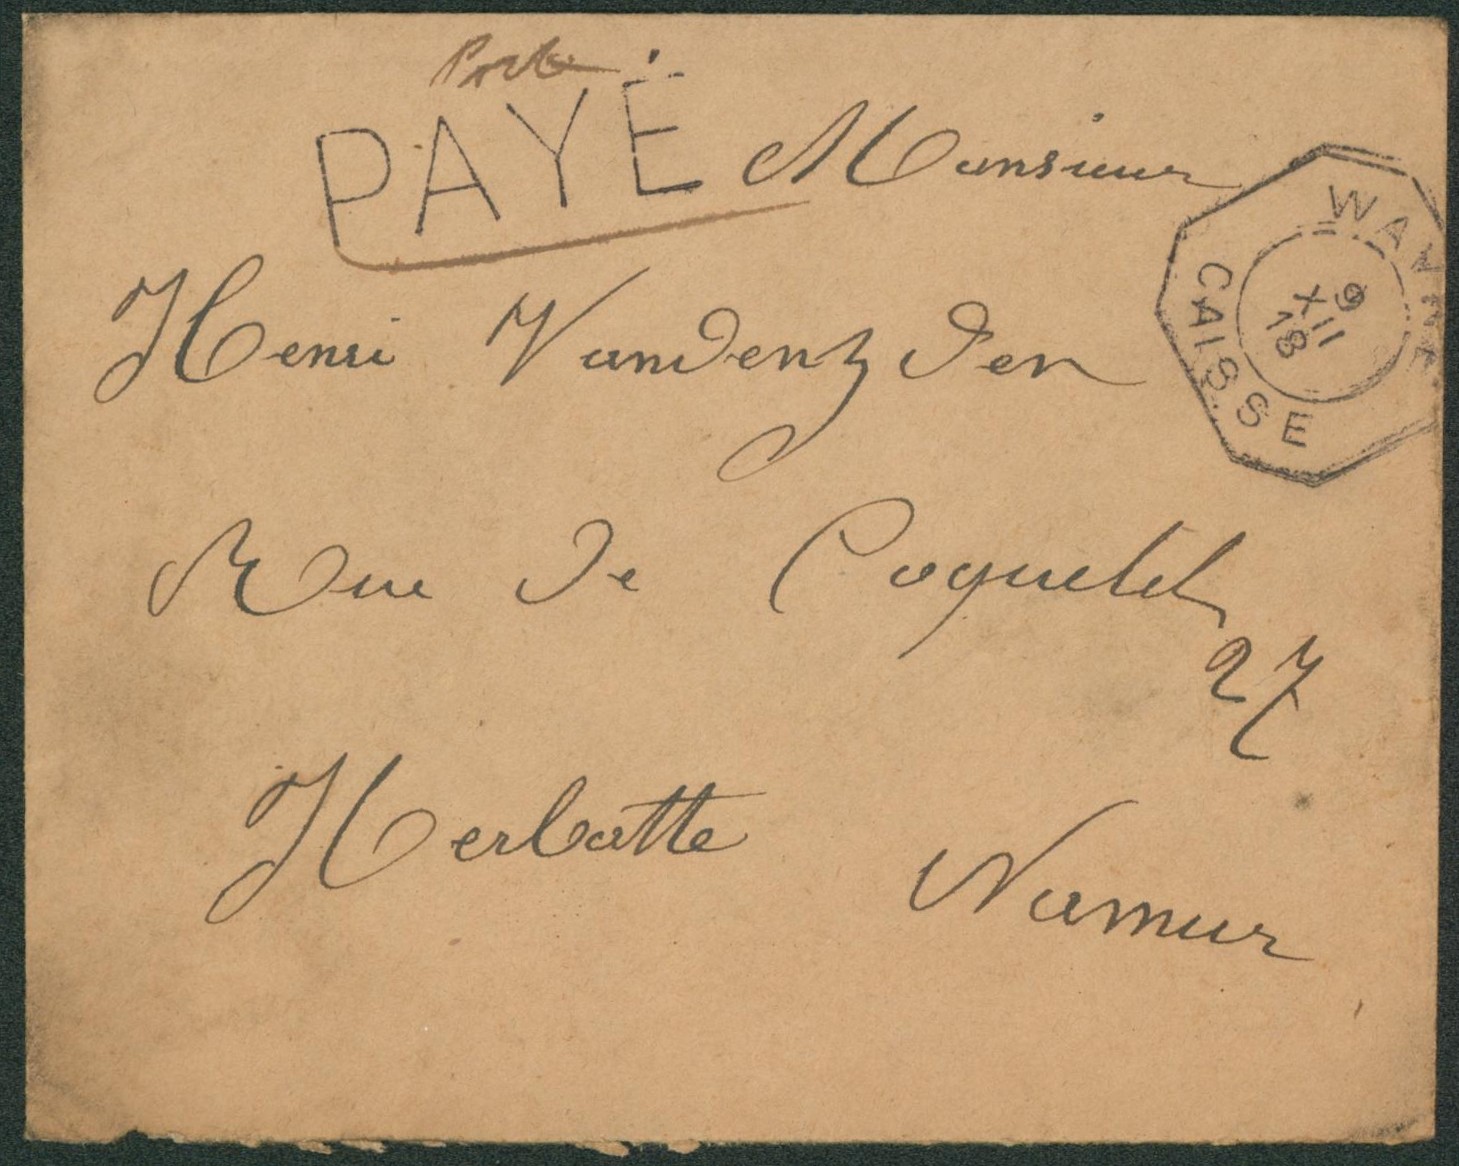 Port
PAYÉ
Monsieur
WAVRE
9
XII
18
CAISSE
Henri Vandenzden
Rue de Coquelet
27
Herbatte
Namur